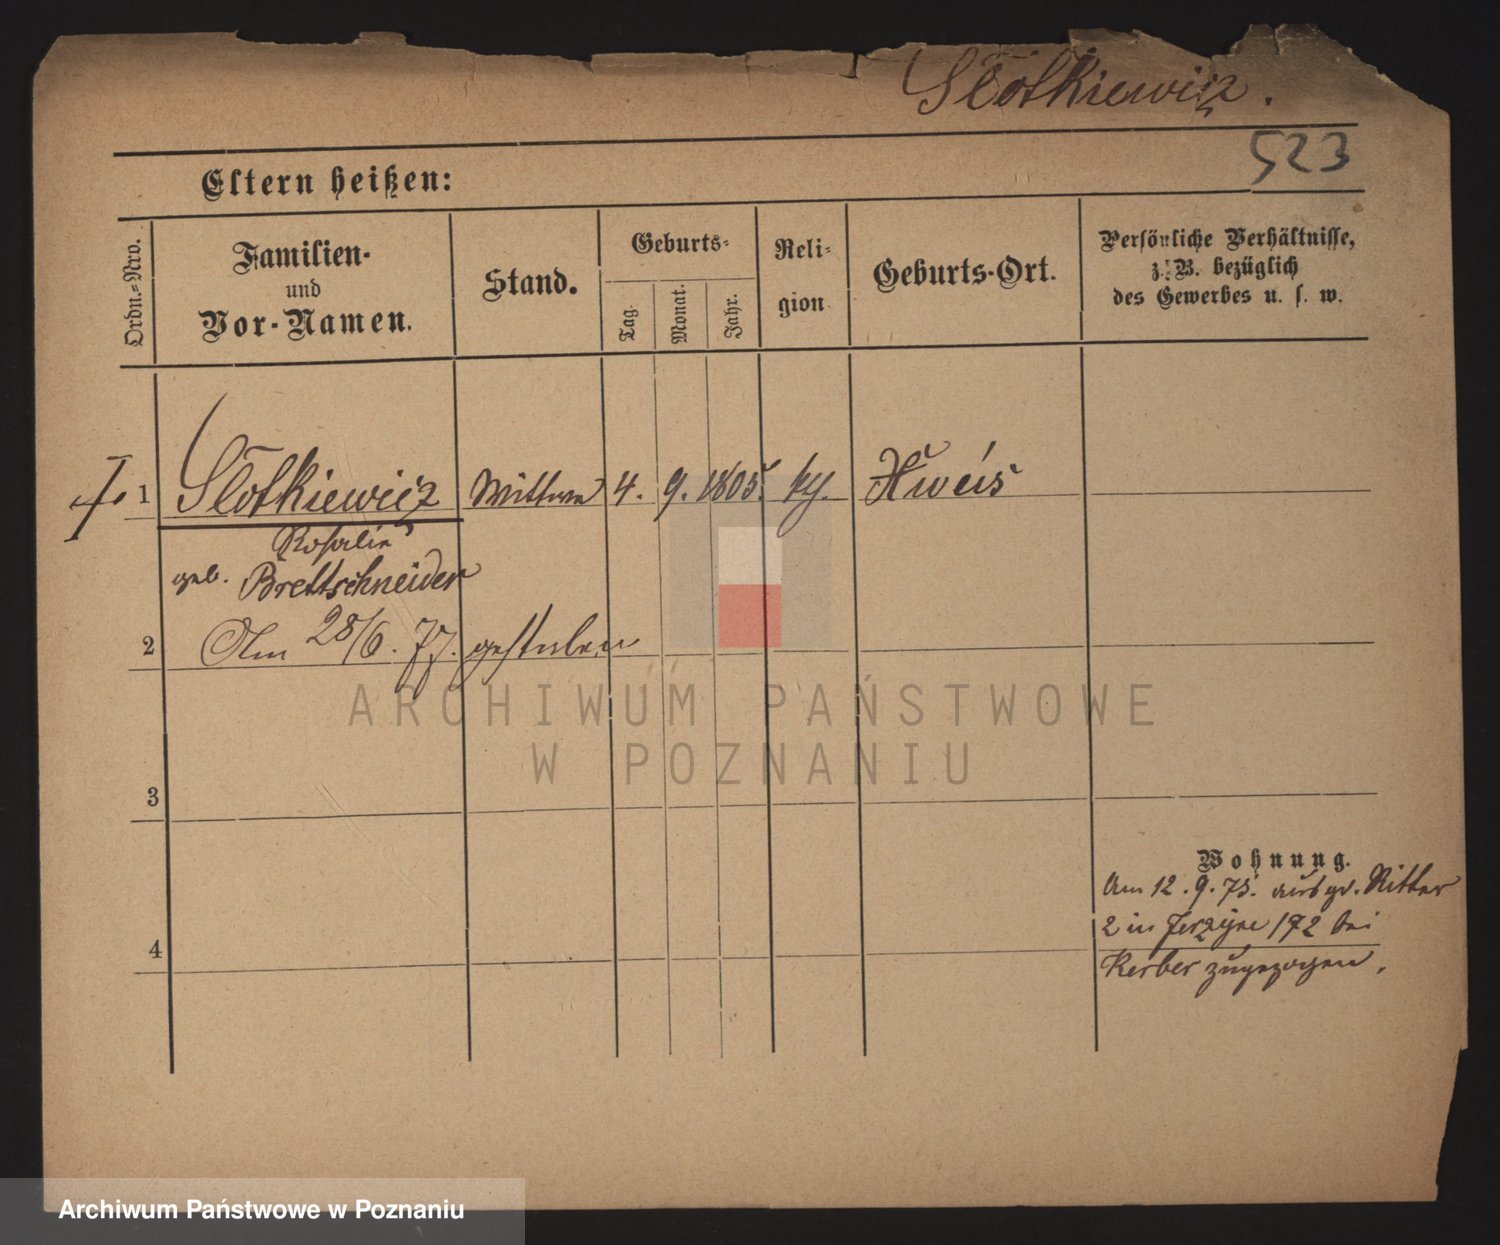 Slotkiewicz.
523
Eltern heißen:
Ordn.=Nro.
Familien-
und
Vor-Namen.
Stand.
Geburts-
Tag.
Monat.
Jahr.
Reli-
gion
Geburts-Ort.
Persönliche Verhältnisse,
z. B. bezüglich
des Gewerbes u. s. w.
1 Slotkiewicz Wittwe 4. 9. 1805. ky.
Rosalie
geb. Brettschneider
2 Am 28/6. 77. gestorben
ARCHIWUM PAŃSTWOWE
W POZNANIU
3
Wohnung.
Am 12. 9. 75. aus gr. Ritter
2 in Jerzyce 172 bei
4
Kerber zugezogen.
Archiwum Państwowe w Poznaniu